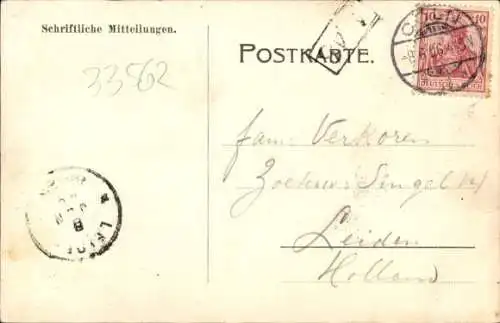 Schriftliche Mitteilungen.
POSTKARTE.
33562
10 10
CÖLN
fam. Verkoren
Zoeterw. Singel
Leiden
Holland
LEIDEN